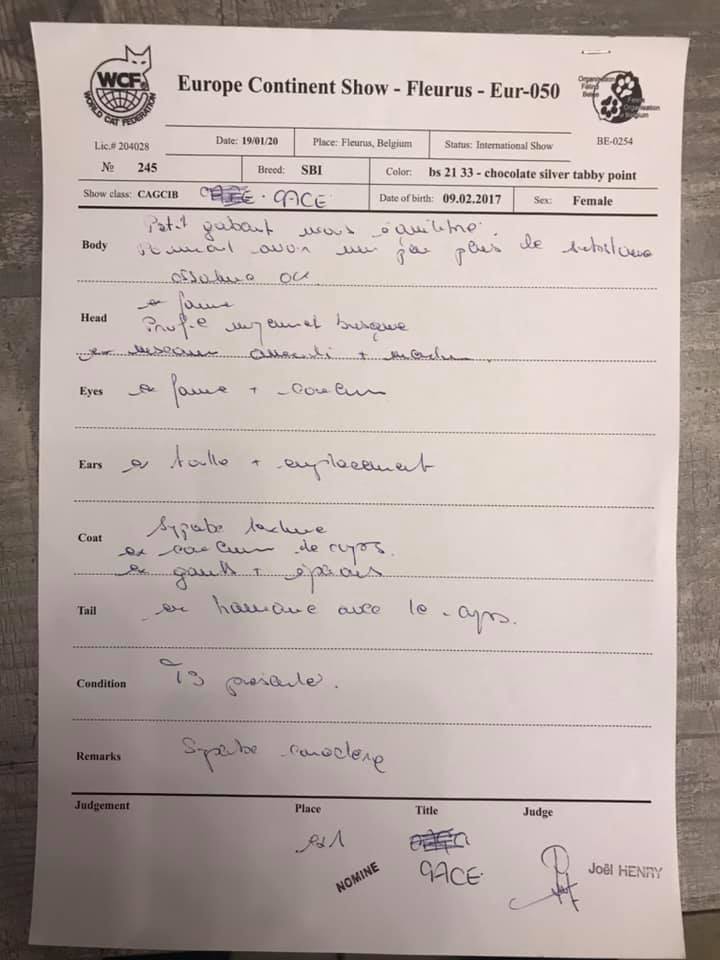 WCF®
WORLD CAT FEDERATION
Europe Continent Show - Fleurus - Eur-050
Lic.# 204028
Date: 19/01/20
Place: Fleurus, Belgium
Status: International Show
BE-0254
№ 245
Breed: SBI
Color: bs 21 33 - chocolate silver tabby point
Show class: CAGCIB
GACE
Date of birth: 09.02.2017
Sex: Female
Body
Petit gabarit mais équilibré.
Pourrait avoir un peu plus de
ossature OK
Head
ex forme
Profil busqué
ex museau +
Eyes ex forme + couleur
Ears ex taille + emplacement
Coat
Superbe texture
ex couleur de corps.
ex gants + éperons
Tail ex harmonie avec le corps.
Condition TB présenté.
Remarks Superbe caractère
Judgement
Place
Title
Judge
ex1
GACE
NOMINE
Joël HENRY